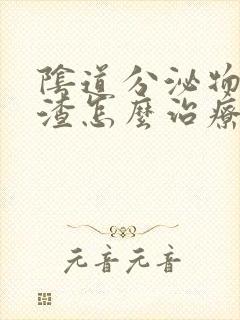 陰道分泌物
渣怎麼治療
元音元音